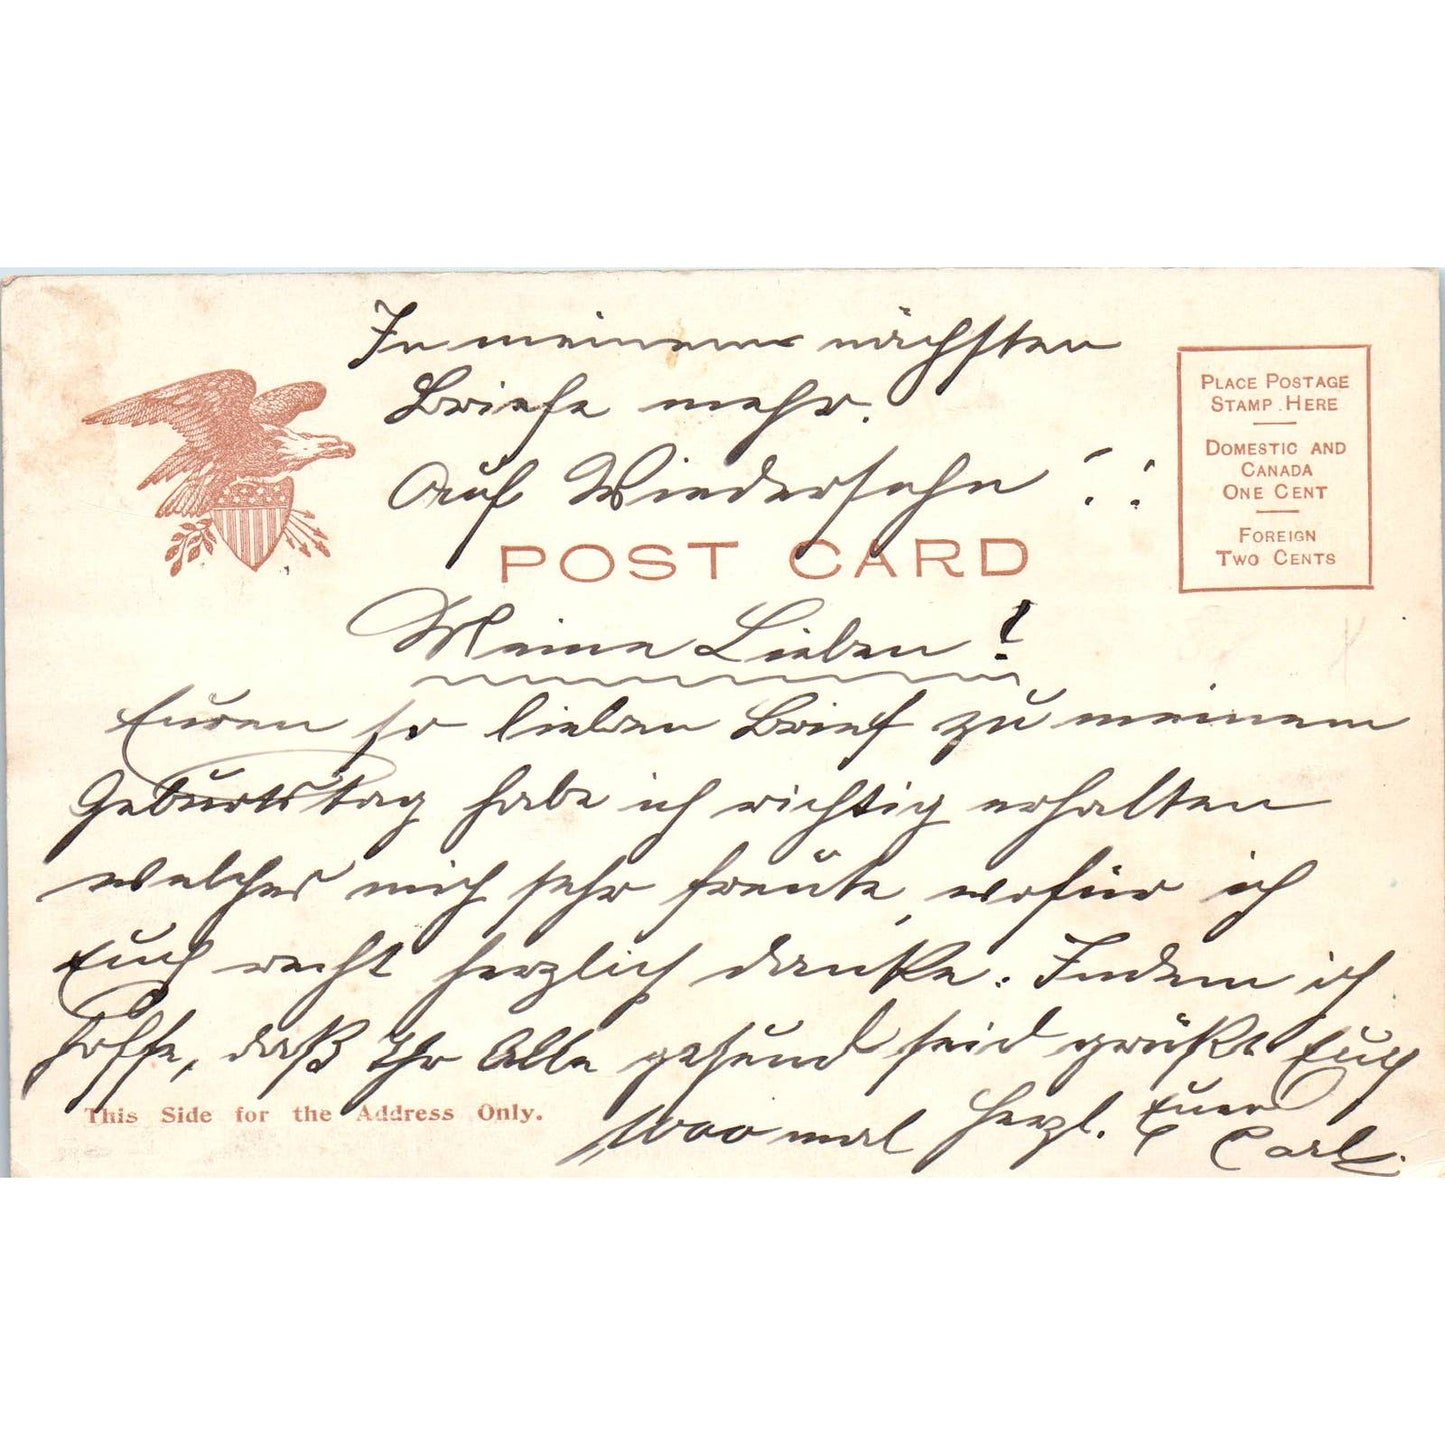 In meinem nächsten
Briefe mehr.
Auf Wiedersehn !!
PLACE POSTAGE
STAMP HERE
DOMESTIC AND
CANADA
ONE CENT
FOREIGN
TWO CENTS
POST CARD
Meine Lieben!
Euren so lieben Brief zu meinem
Geburtstag habe ich richtig erhalten
welches mich sehr freute, wofür ich
Euch recht herzlich danke. Indem ich
hoffe, daß Ihr Alle gesund seid grüßt Euch
This Side for the Address Only.
1000 mal herzl. Euer
Carl.